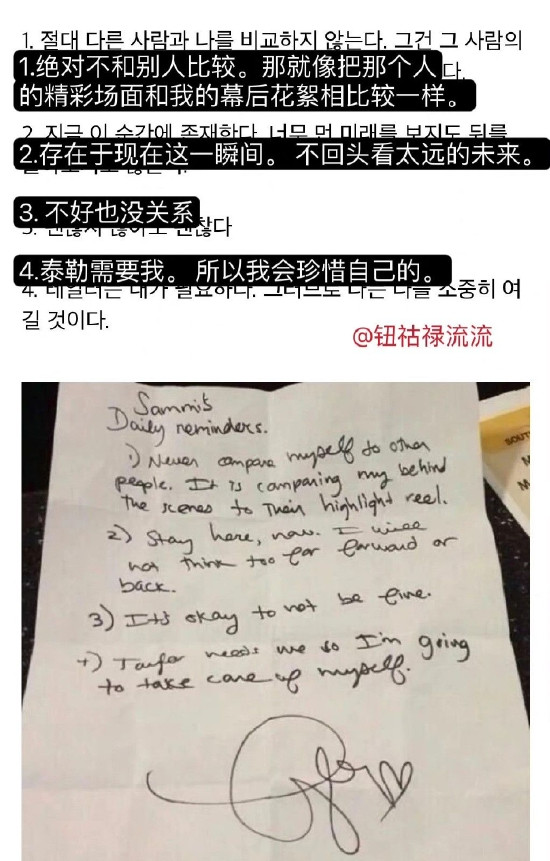 1. 절대 다른 사람과 나를 비교하지 않는다. 그건 그 사람의
1.绝对不和别人比较。那就像把那个人
다.
的精彩场面和我的幕后花絮相比较一样。
2. 지금 이 순간에 존재한다. 너무 먼 미래를 보지도 뒤를
2.存在于现在这一瞬间。 不回头看太远的未来。
3. 不好也没关系
3. 괜찮지 않아도 괜찮다
4.泰勒需要我。 所以我会珍惜自己的。
4. 테일러는 내가 필요하다. 그러므로 나는 나를 소중히 여
길 것이다.
@钮祜禄流流
Sammi's
Daily reminders.
1) Never compare myself to other
people. It is comparing my behind
the scenes to their highlight reel.
2) Stay here, now. I will
not think too far forward or
back.
3) It's okay to not be fine.
4) Taylor needs me so I'm going
to take care of myself.
SOUT
M
M